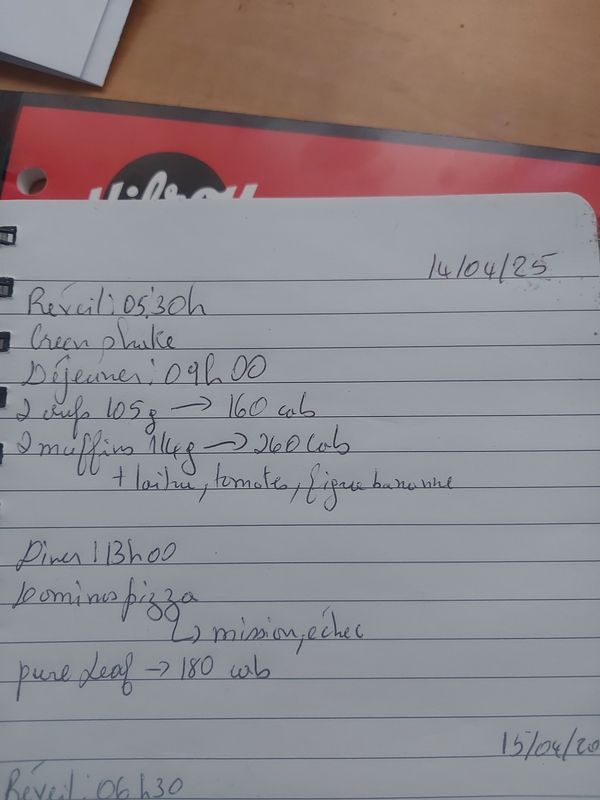 Hilroy
14/04/25
Réveil: 05:30h
Green shake
Déjeuner: 09h00
2 œufs 105g → 160 cals
2 muffins 114g → 260 cals
+ laitue, tomates, figue banane
Diner: 13h00
Dominos pizza
↳ mission, échec
pure Leaf → 180 cals
15/04/20
Réveil: 06h30